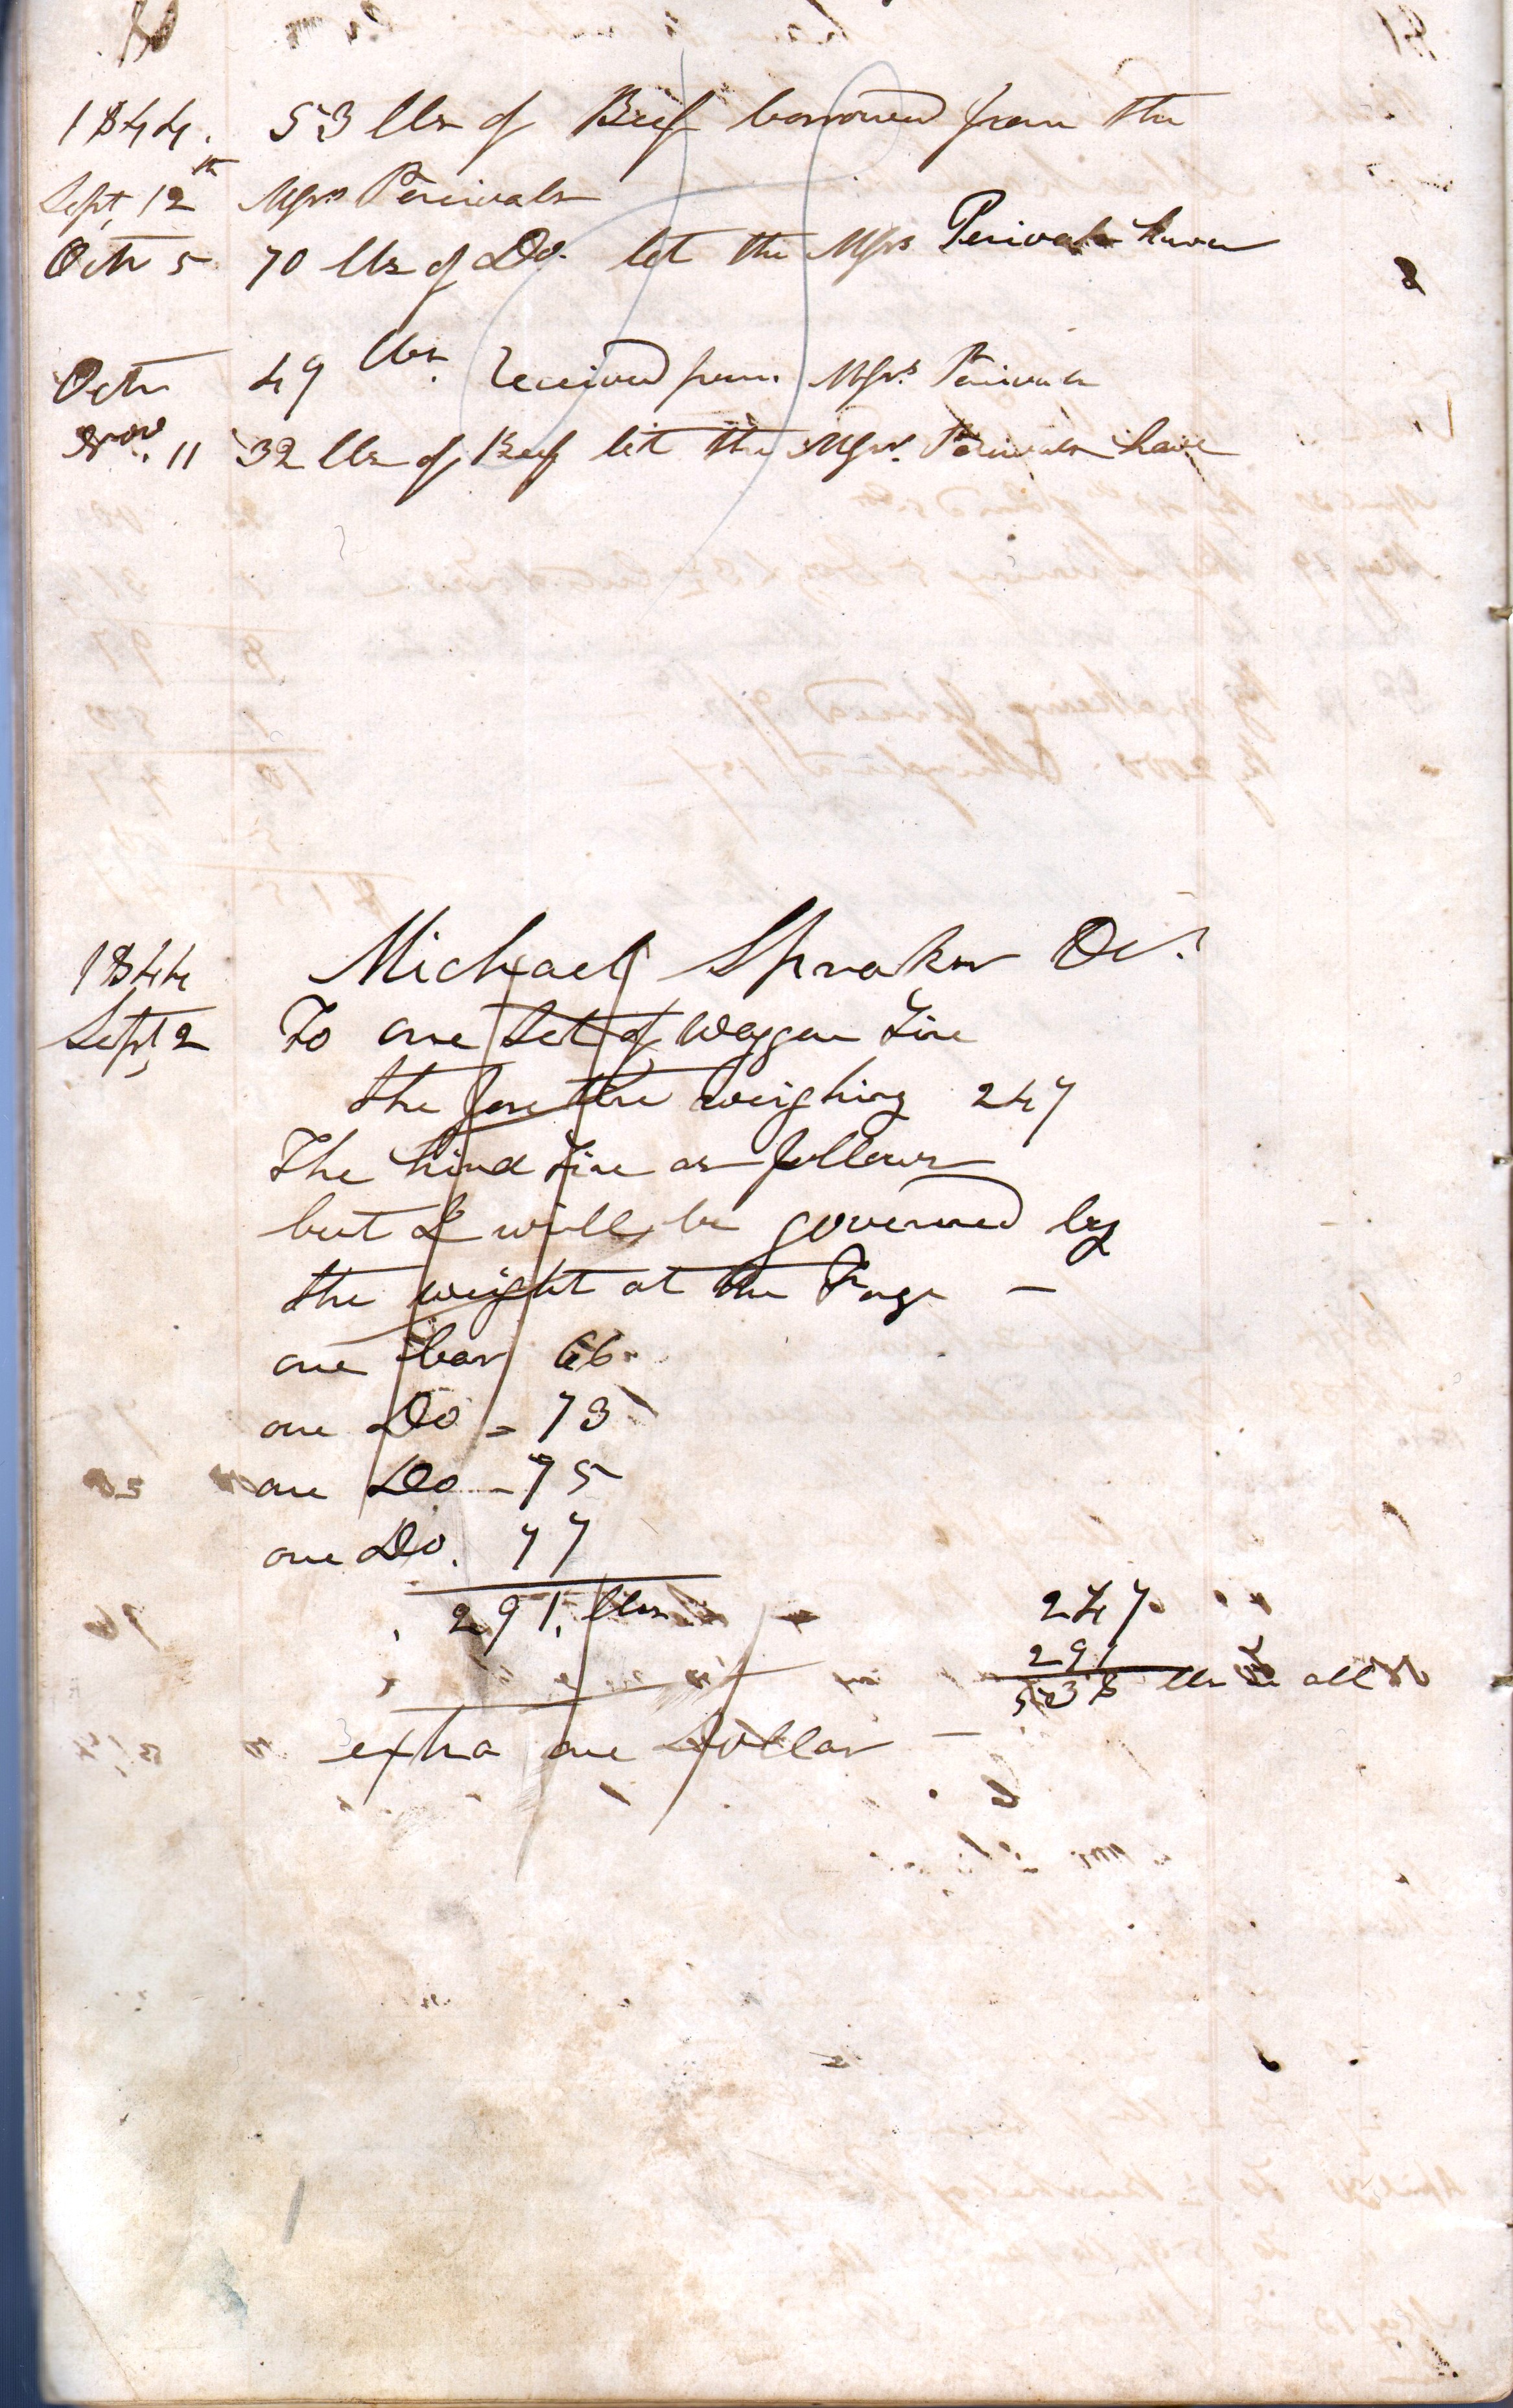 1844. 53 lbs of Beef borrowed from the
Sept 12th Mssrs Percivals
Octr 5 70 lbs of Do. let the Mssrs Percivals have
Octr 49 lbs. received from Mssrs Percivals
Nov. 11 32 lbs of Beef let the Mssrs. Percivals have
1844 Michael Spraker Dr.
Sept, 2 To one Set of Waggon Tire
the fore tire weighing 247
The hind Tire as follows
but I will be governed by
the weight at the Forge —
one bar 66
one Do - 73
one Do - 75
one Do. 77
291. lbs
247
291
538 lbs in all
extra one Dollar —